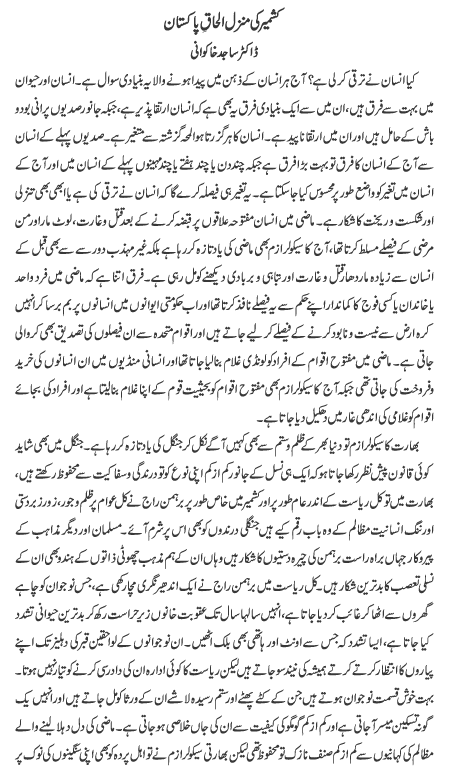 کشمیر کی منزل الحاقِ پاکستان
ڈاکٹر ساجد خاکوانی
کیا انسان نے ترقی کر لی ہے؟ آج ہر انسان کے ذہن میں پیدا ہونے والا یہ بنیادی سوال ہے۔ انسان اور حیوان
میں بہت سے فرق ہیں، ان میں سے ایک بنیادی فرق یہ بھی ہے کہ انسان ارتقا پذیر ہے، جبکہ جانور صدیوں پرانی بود و
باش کے حامل ہیں اور ان میں ارتقا ناپید ہے۔ انسان کا ہر گزرتا ہوا لمحہ گزشتہ سے متغیر ہے۔ صدیوں پہلے کے انسان
سے آج کے انسان کا فرق تو بہت بڑا فرق ہے جبکہ چند دن یا چند ہفتے یا چند مہینوں پہلے کے انسان اور آج کے
انسان میں تغیر کو واضع طور پر محسوس کیا جا سکتا ہے۔ یہ تغیر ہی فیصلہ کرے گا کہ انسان نے ترقی کی ہے یا ابھی بھی تنزلی
اور شکست و ریخت کا شکار ہے۔ ماضی میں انسان مفتوحہ علاقوں پر قبضہ کرنے کے بعد قتل و غارت، لوٹ مار اور من
مرضی کے فیصلے مسلط کرتا تھا، آج کا سیکولرازم بھی ماضی کی یاد تازہ کر رہا ہے بلکہ غیر مہذب دور سے سے بھی قبل کے
انسان سے زیادہ مار دھاڑ قتل و غارت اور تباہی و بربادی دیکھنے کو مل رہی ہے۔ فرق اتنا ہے کہ ماضی میں فرد واحد
یا خاندان یا کسی فوج کا کماندار اپنے حکم سے یہ فیصلے نافذ کرتا تھا اور اب حکومتی ایوانوں میں انسانوں پر بم برسا کر انہیں
کرہ ارض سے نیست و نابود کرنے کے فیصلے کر لیے جاتے ہیں اور اقوام متحدہ سے ان فیصلوں کی تصدیق بھی کروا لی
جاتی ہے۔ ماضی میں مفتوح اقوام کے افراد کو لونڈی غلام بنا لیا جاتا تھا اور انسانی منڈیوں میں ان انسانوں کی خرید
و فروخت کی جاتی تھی جبکہ آج کا سیکولرازم بھی مفتوح اقوام کو بحیثیت قوم کے اپنا غلام بنا لیتا ہے اور افراد کی بجائے
اقوام کو غلامی کی اندھی غار میں دھکیل دیا جاتا ہے۔
بھارت کا سیکولرازم تو دنیا بھر کے ظلم و ستم سے بھی کہیں آگے نکل کر جنگل کی یاد تازہ کر رہا ہے۔ جنگل میں بھی شاید
کوئی قانون پیش نظر رکھا جاتا ہو کہ ایک ہی نسل کے جانور کم از کم اپنی نوع کو تو درندگی و سفاکیت سے محفوظ رکھتے ہیں،
بھارت میں تو کل ریاست کے اندر عام طور پر اور کشمیر میں خاص طور پر برہمن راج نے کل عوام پر ظلم و جور، زور زبردستی
اور ننگ انسانیت مظالم کے وہ باب رقم کیے ہیں جنگلی درندوں کو بھی اس پر شرم آئے۔ مسلمان اور دیگر مذاہب کے
پیروکار جہاں براہ راست برہمن کی چیرہ دستیوں کا شکار ہیں وہاں ان کے ہم مذہب چھوٹی ذاتوں کے ہندو بھی ان کے
نسلی تعصب کا بدترین شکار ہیں۔ کل ریاست میں برہمن راج نے ایک اندھیر نگری مچا رکھی ہے، جس نوجوان کو چاہے
گھروں سے اٹھا کر غائب کر دیا جاتا ہے، انہیں سالہا سال تک عقوبت خانوں زیر حراست رکھ کر بدترین حیوانی تشدد
کیا جاتا ہے، ایسا تشدد کہ جس سے اونٹ اور ہاتھی بھی بلک اٹھیں۔ ان نوجوانوں کے لواحقین قبر کی دہلیز تک اپنے
پیاروں کا انتظار کرتے کرتے ہمیشہ کی نیند سو جاتے ہیں لیکن ریاست کا کوئی ادارہ ان کی داد رسی کرنے کو تیار نہیں ہوتا۔
بہت خوش قسمت نوجوان ہوتے ہیں جن کے کٹے پھٹے اور ستم رسیدہ لاشے ان کے ورثا کو مل جاتے ہیں اور انہیں یک
گونہ تسکین میسر آ جاتی ہے اور کم از کم گومگو کی کیفیت سے ان کی جاں خلاصی ہو جاتی ہے۔ ماضی کی دل دہلا لینے والے
مظالم کی کہانیوں سے کم از کم صنف نازک تو محفوظ تھی لیکن بھارتی سیکولرازم نے تو اہل پردہ کو بھی اپنی سنگینوں کی نوک پر